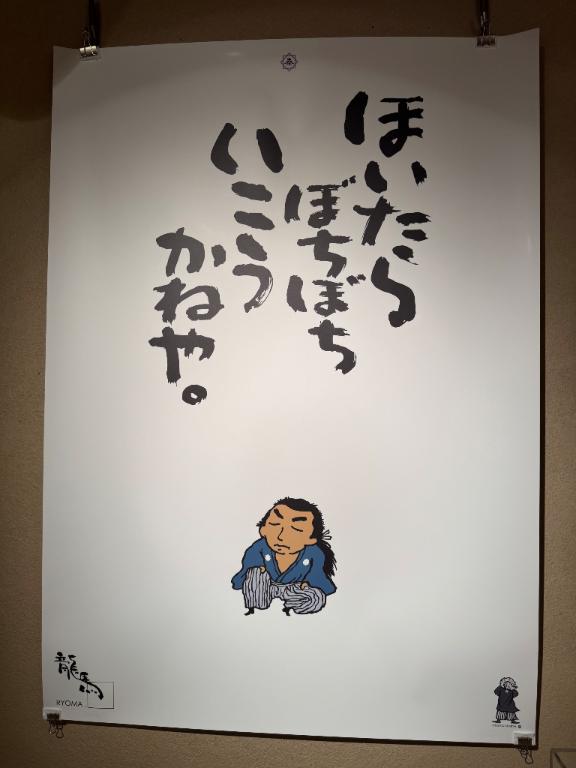 ほいたら
ぼちぼち
いこう
かねや。
龍馬
RYOMA